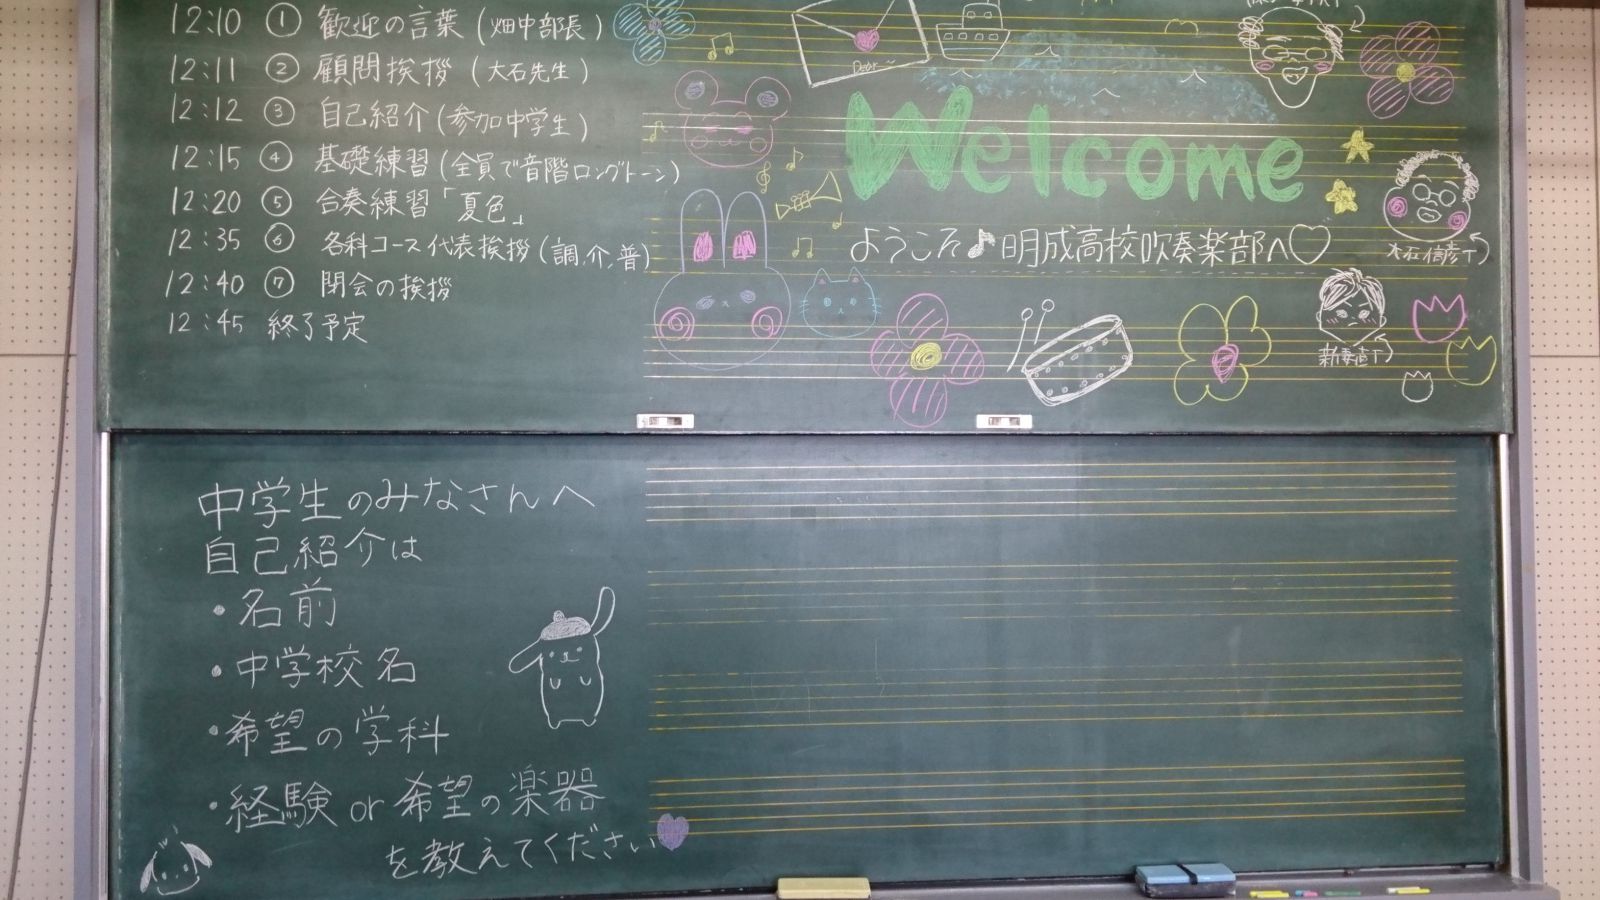 12:10 ① 歓迎の言葉 (畑中部長)
12:11 ② 顧問挨拶 (大石先生)
12:12 ③ 自己紹介 (参加中学生)
12:15 ④ 基礎練習 (全員で音階ロングトーン)
12:20 ⑤ 合奏練習「夏色」
12:35 ⑥ 各科コース代表挨拶 (調、介、普)
12:40 ⑦ 閉会の挨拶
12:45 終了予定
Dear~
Welcome
ようこそ♪明成高校吹奏楽部へ♡
大石信彦T
中学生のみなさんへ
自己紹介は
・名前
・中学校名
・希望の学科
・経験 or 希望の楽器
を教えてください